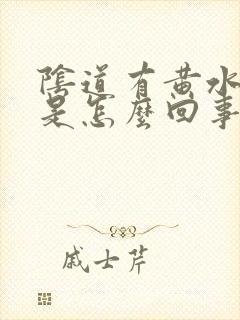 陰道有黄水
是怎麼回事
戚士芹